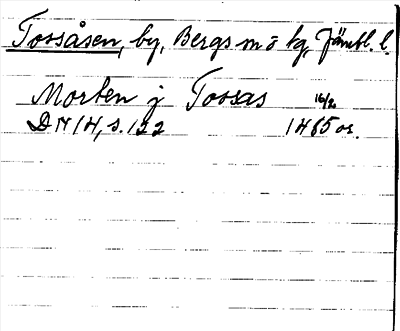 Tossåsen, by, Bergs m o tg, Jämtl. l.
Morten j Tossas 16/20
DN 14, s. 122 1465 or.